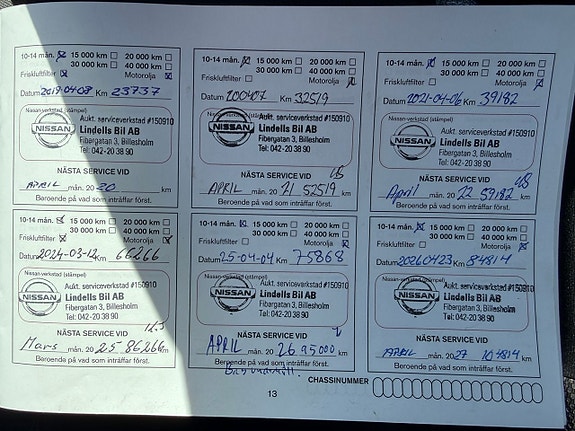 10-14 mån. ☒ 15 000 km ☐ 20 000 km ☐
30 000 km ☐ 40 000 km ☐
Friskluftfilter ☒ Motorolja ☒
Datum 2019-04-08 Km 23737
Nissan-verkstad (stämpel)
NISSAN
Aukt. serviceverkstad #150910
Lindells Bil AB
Fibergatan 3, Billesholm
Tel: 042-20 38 90
NÄSTA SERVICE VID
APRIL mån. 20 20 km
Beroende på vad som inträffar först.
10-14 mån. ☒ 15 000 km ☐ 20 000 km ☐
30 000 km ☐ 40 000 km ☐
Friskluftfilter ☐ Motorolja ☒
Datum 200407 Km 32519
NISSAN
Aukt. serviceverkstad #150910
Lindells Bil AB
Fibergatan 3, Billesholm
Tel: 042-20 38 90
NÄSTA SERVICE VID
APRIL mån. 20 21 52519 km
Beroende på vad som inträffar först.
10-14 mån. ☒ 15 000 km ☐ 20 000 km ☐
30 000 km ☐ 40 000 km ☐
Friskluftfilter ☐ Motorolja ☒
Datum 2021-04-06 Km 39182
Nissan-verkstad (stämpel)
NISSAN
Aukt. serviceverkstad #150910
Lindells Bil AB
Fibergatan 3, Billesholm
Tel: 042-20 38 90
NÄSTA SERVICE VID
April mån. 20 22 59182 km
Beroende på vad som inträffar först.
10-14 mån. ☒ 15 000 km ☐ 20 000 km ☐
30 000 km ☐ 40 000 km ☐
Friskluftfilter ☒ Motorolja ☒
Datum 2024-03-12 Km 66266
Nissan-verkstad (stämpel)
NISSAN
Aukt. serviceverkstad #150910
Lindells Bil AB
Fibergatan 3, Billesholm
Tel: 042-20 38 90
NÄSTA SERVICE VID
Mars mån. 20 25 86266 km
Beroende på vad som inträffar först.
10-14 mån. ☒ 15 000 km ☐ 20 000 km ☐
30 000 km ☐ 40 000 km ☐
Friskluftfilter ☐ Motorolja ☒
Datum 25-04-04 Km 75868
Nissan-verkstad (stämpel)
NISSAN
Aukt. serviceverkstad #150910
Lindells Bil AB
Fibergatan 3, Billesholm
Tel: 042-20 38 90
NÄSTA SERVICE VID
APRIL mån. 20 26 95000 km
Beroende på vad som inträffar först.
10-14 mån. ☒ 15 000 km ☐ 20 000 km ☐
30 000 km ☐ 40 000 km ☐
Friskluftfilter ☐ Motorolja ☒
Datum 20260423 Km 84814
NISSAN
Aukt. serviceverkstad #150910
Lindells Bil AB
Fibergatan 3, Billesholm
Tel: 042-20 38 90
NÄSTA SERVICE VID
APRIL mån. 20 27 104814 km
Beroende på vad som inträffar först.
CHASSINUMMER
13